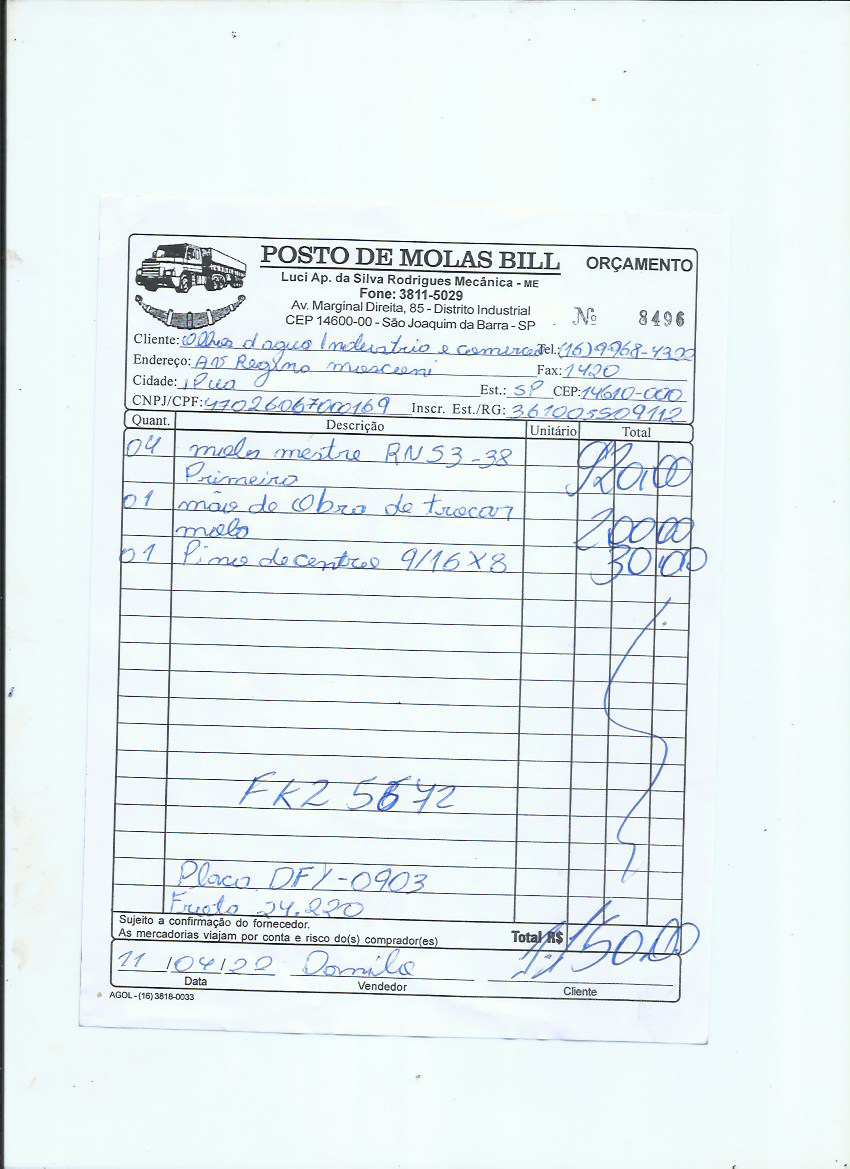 POSTO DE MOLAS BILL
ORÇAMENTO
Luci Ap. da Silva Rodrigues Mecânica - ME
Fone: 3811-5029
Av. Marginal Direita, 85 - Distrito Industrial
CEP 14600-00 - São Joaquim da Barra - SP
Nº 8496
Cliente: Olhos d agua Industria e comercio Tel.: (16) 9968-4322
Endereço: Av Regina Fax: 1420
Cidade: Ipua Est.: SP CEP: 14610-000
CNPJ/CPF: 47026067000169 Inscr. Est./RG: 361005509112
Quant. Descrição Unitário Total
04 mola mestre RN53-38 920,00
Primeira
01 mão de Obra de trocar
mola 200,00
01 Pino de centro 9/16 X 8 30,00
FKZ 5672
Placa DFI-0903
Frota 24.220
Sujeito a confirmação do fornecedor.
As mercadorias viajam por conta e risco do(s) comprador(es)
Total R$ 1.150,00
11 /04/22 Danilo
Data Vendedor Cliente
AGOL - (16) 3818-0033